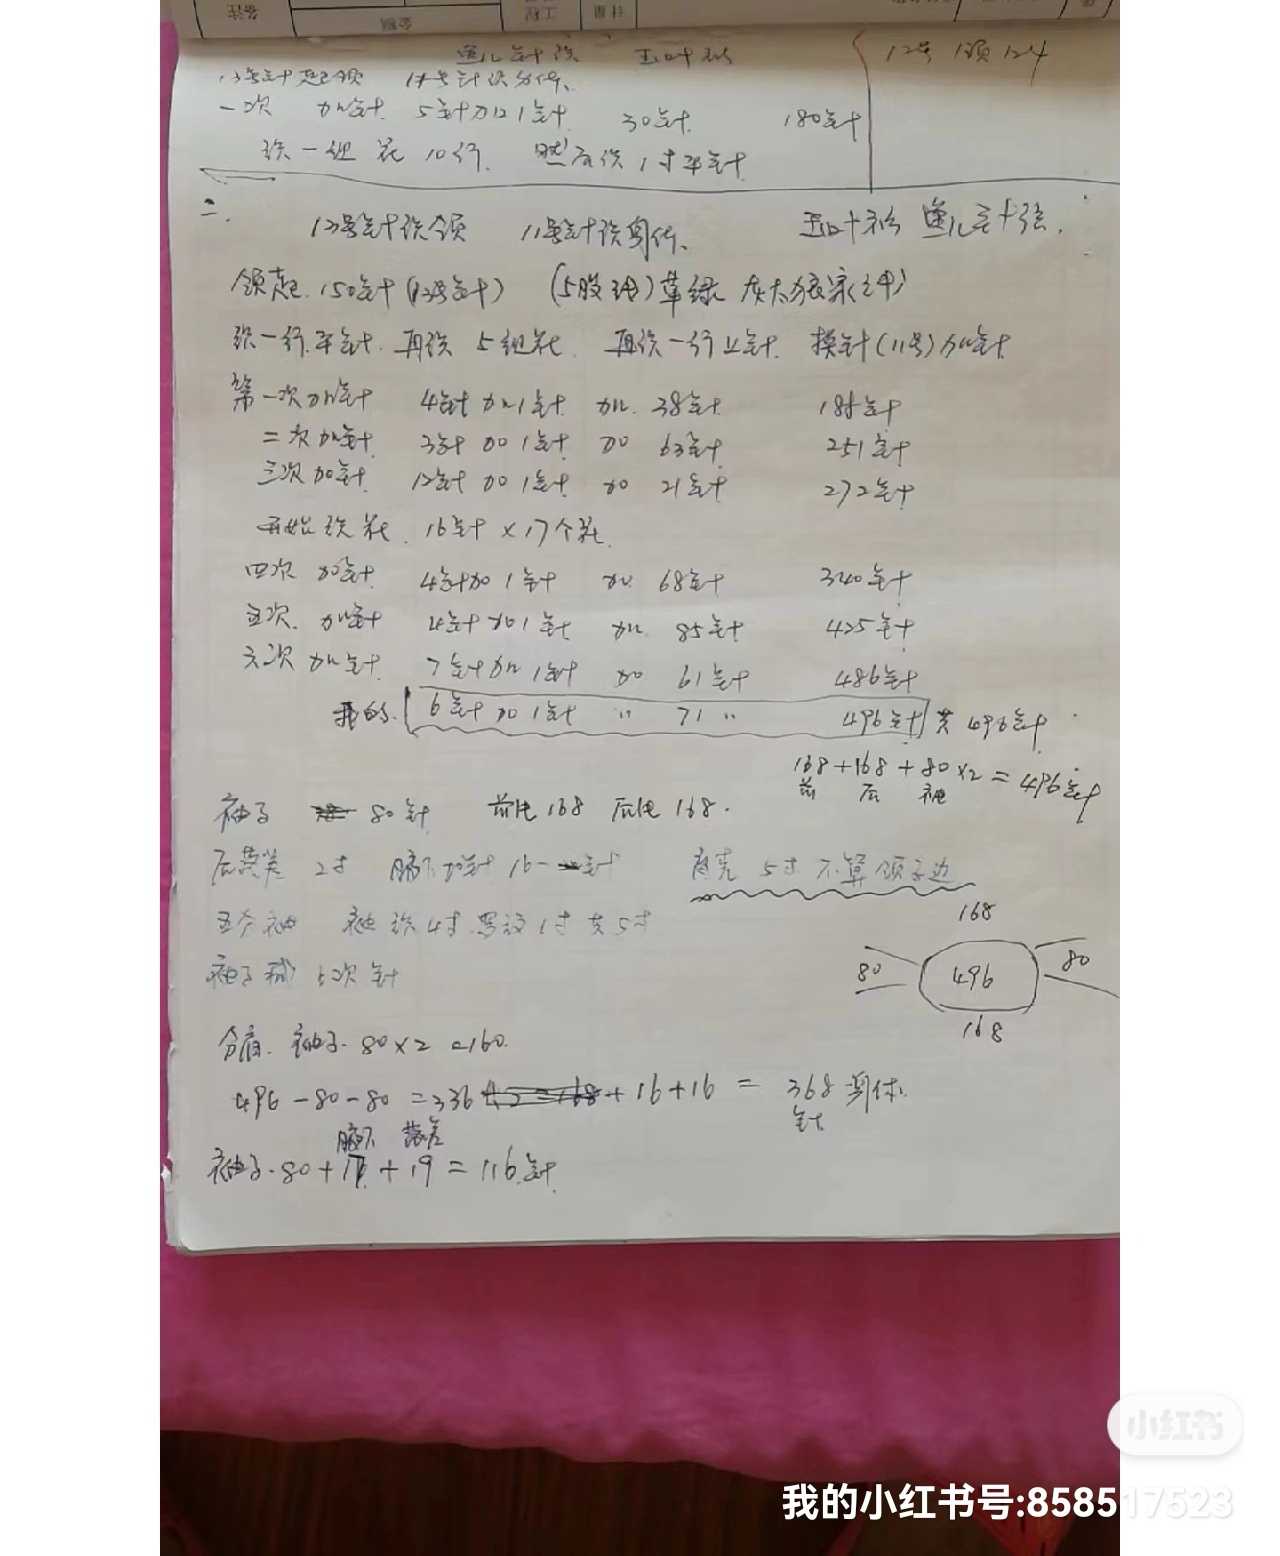 备注 金额 工程 计量
12号 1领 124
13号针起领
一次 加针 5针加1针 30针 180针
织一组花10行. 然后织1寸平针
二.
13号针织领 11号针织身体.
领起.150针(13号针) (5股线)草绿
织一行.平针.再织5组花.再织一行上针.换针(11号)加针
第一次加针 4针加1针 加.38针 188针
二次加针 3针加1针 加 63针 251针
三次加针 12针加1针 加 21针 272针
开始织花.16针×17个花.
四次 加针 4针加1针 加 68针 340针
五次.加针 4针加1针 加.85针 425针
六次加针 7针加1针 加 61针 486针
我的.6针加1针 〃 71 〃 496针 共496针
168+168+80×2=496针
前 后 袖
袖子 80针 前片168 后片168.
后 2寸 腋下加针16-针 5寸不算领子边
袖织4寸 1寸共5寸
168
袖子减5次针
80 496 80
168
分 袖子.80×2=160.
496-80-80=336+16+16=368身体.
针
腋下
袖子.80+17+19=116针
小红书
我的小红书号:858517523